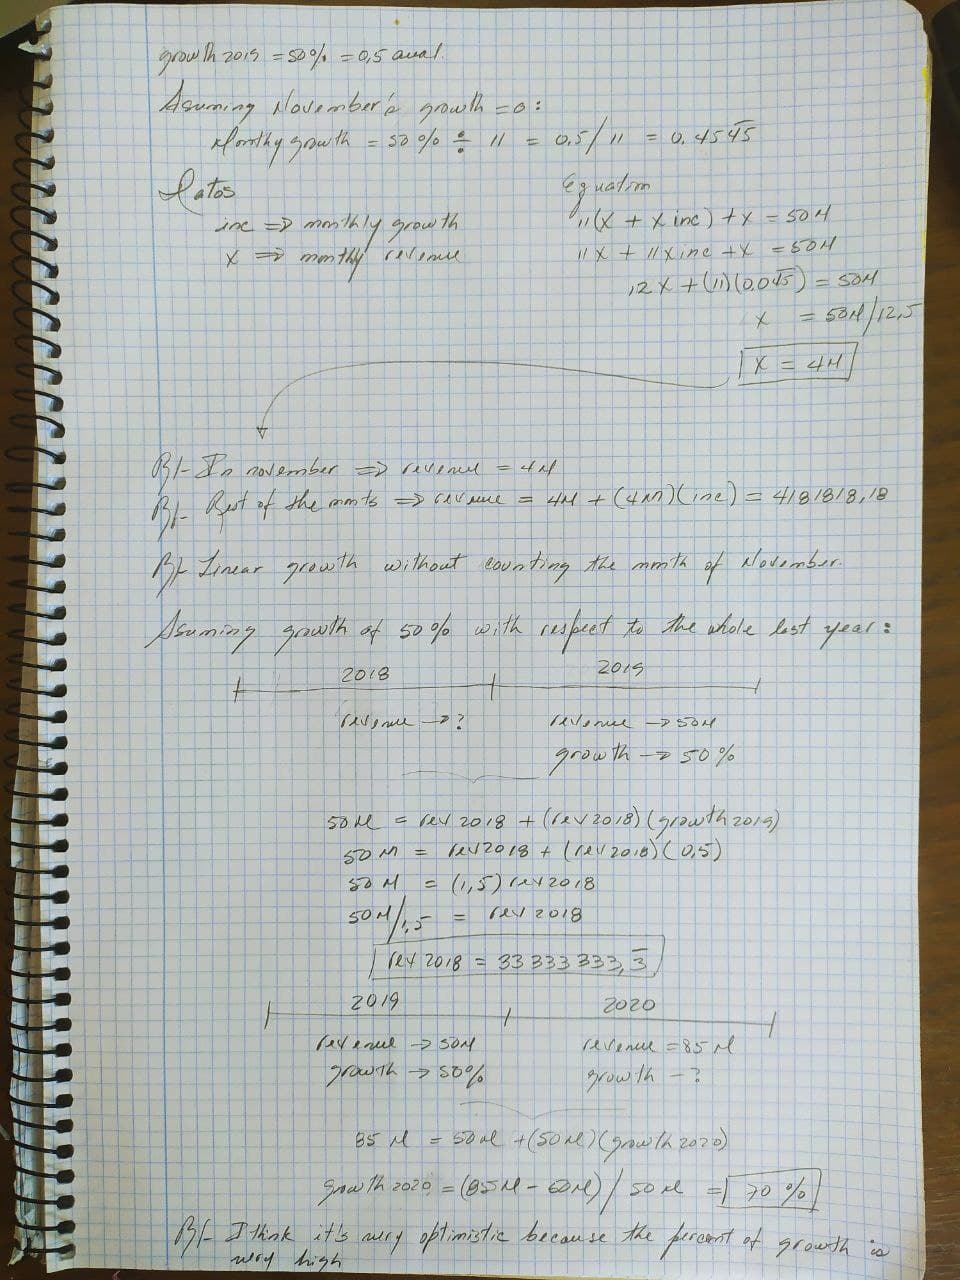 growth 2019 = 50% = 0,5 anal.
Asuming November's growth = 0:
Monthy growth = 50% ÷ 11 = 0,5/11 = 0,454̅5̅
Datos
inc => monthly growth
x => monthly revenue
Equation
11(x + x inc) + x = 50M
11x + 11x inc + x = 50M
12x + (11)(0,04̅5̅) = 50M
x = 50M/12,5
x = 4M
R/- In november => revenue = 4M
R/- Rest of the monts => revenue = 4M + (4M)(inc) = 4181818,18
R/- Linear growth without counting the month of November.
Asuming growth of 50% with respect to the whole last year:
2018 2019
revenue -> ? revenue -> 50M
growth -> 50%
50M = rev 2018 + (rev 2018)(growth 2019)
50M = rev 2018 + (rev 2018)(0,5)
50M = (1,5) rev 2018
50M/1,5 = rev 2018
rev 2018 = 33333333,3̅
2019 2020
revenue -> 50M revenue = 85M
growth -> 50% growth - ?
85M = 50M + (50M)(growth 2020)
growth 2020 = (85M - 50M) / 50M = 70%
R/- I think it's very optimistic because the percent of growth is
very high